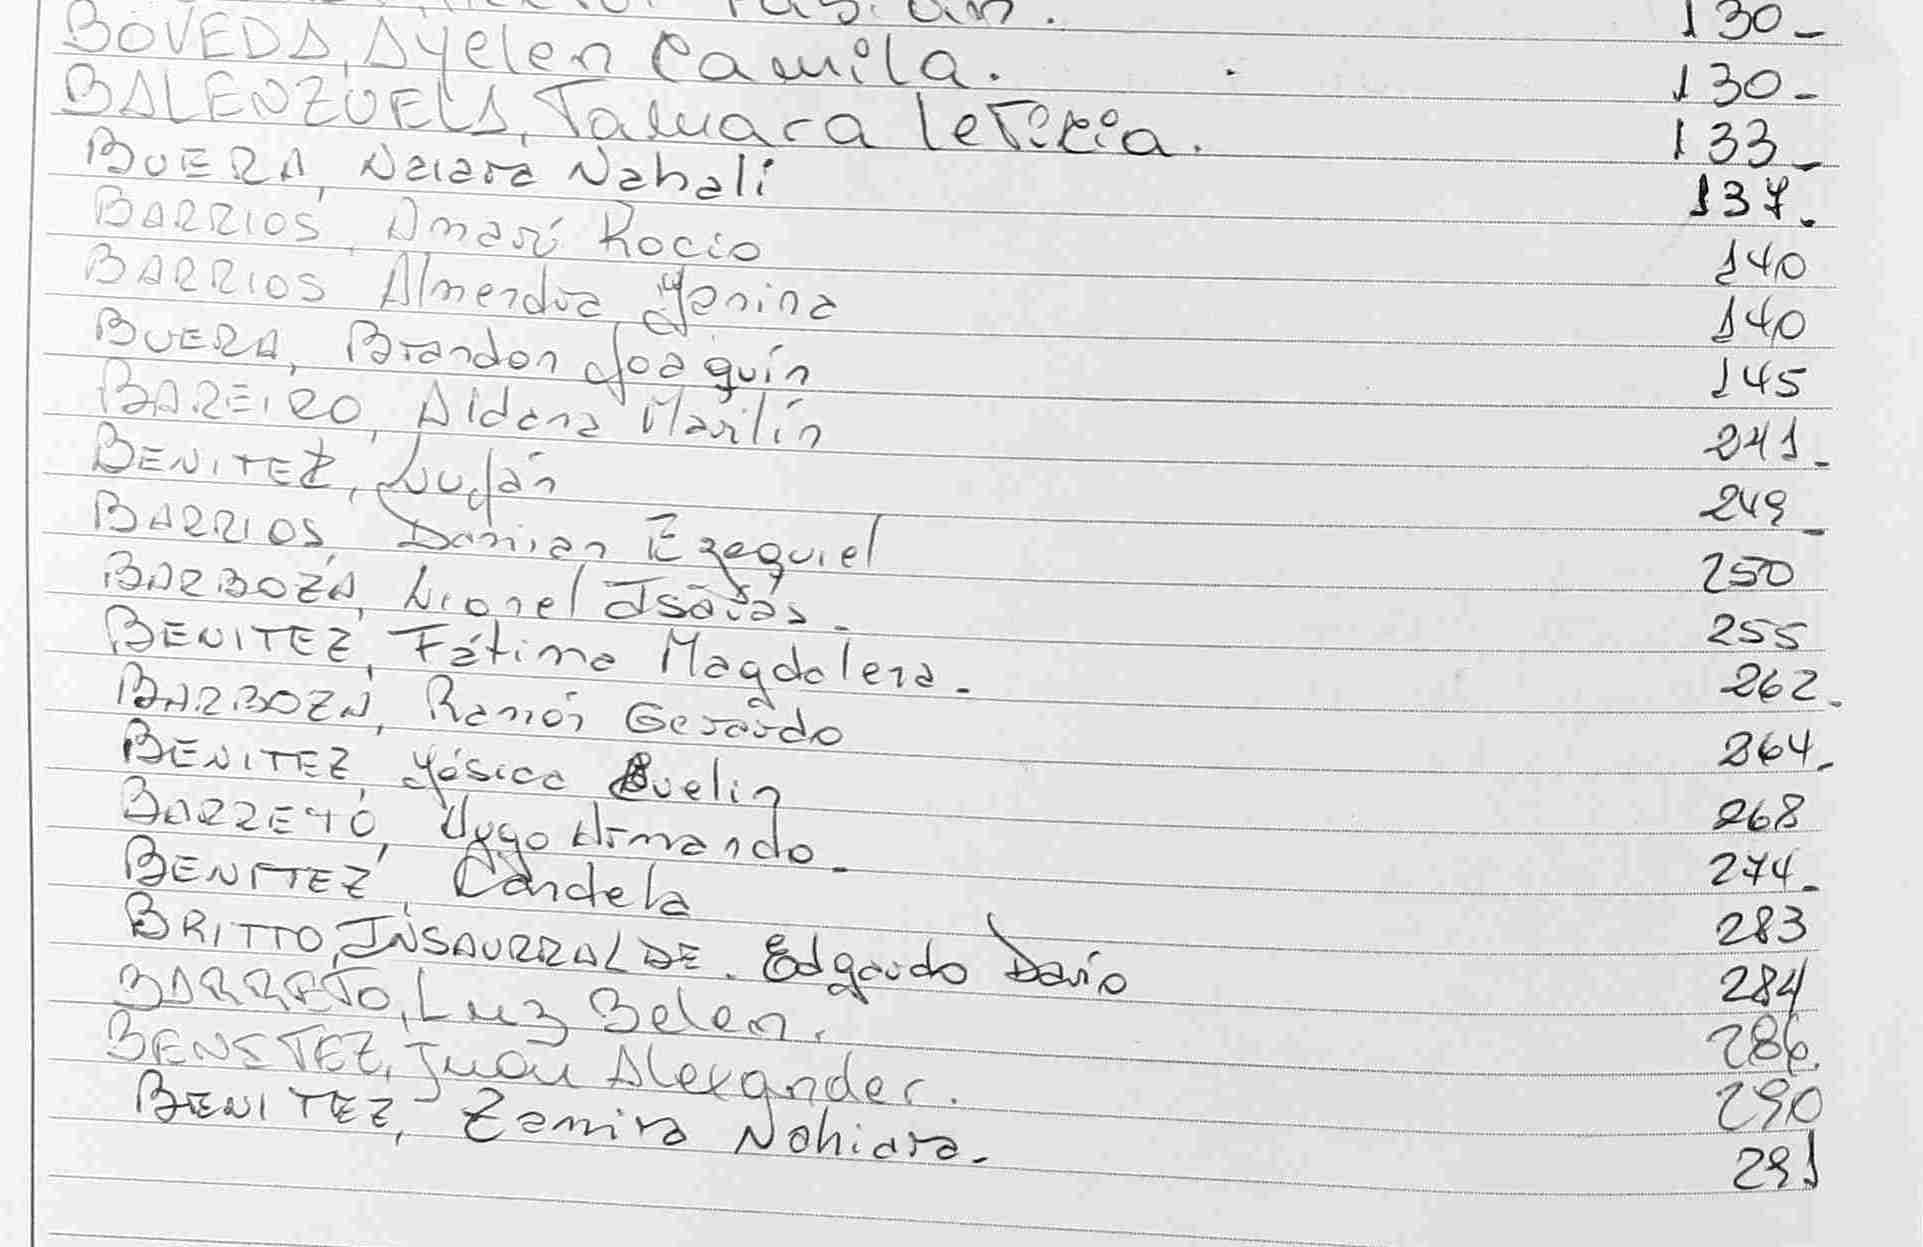 130-
BOVEDA, Ayelen Camila. 130-
BALENZUELA, Tamara Leticia. 133-
BUERA, Naiara Nahali 137.
BARRIOS, Amarí Rocio 140
BARRIOS Almendra Yanina 140
BUERA, Brandon Joaquín 145
BAREIRO, Aldana Marilín 241-
BENITEZ, Luján 249-
BARRIOS, Damian Ezequiel 250
BARBOZA, Lionel Isaías. 255
BENITEZ, Fátima Magdalena. 262.
BARBOZA, Ramón Gerardo 264.
BENITEZ, Yésica Evelin 268
BARRETO, Hugo Armando. 274.
BENITEZ, Candela 283
BRITTO, INSAURRALDE. Edgardo Darío 284
BARRETO, Luz Belen. 286.
BENITEZ, Juan Alexander. 290
BENITEZ, Zamira Nohiara. 291